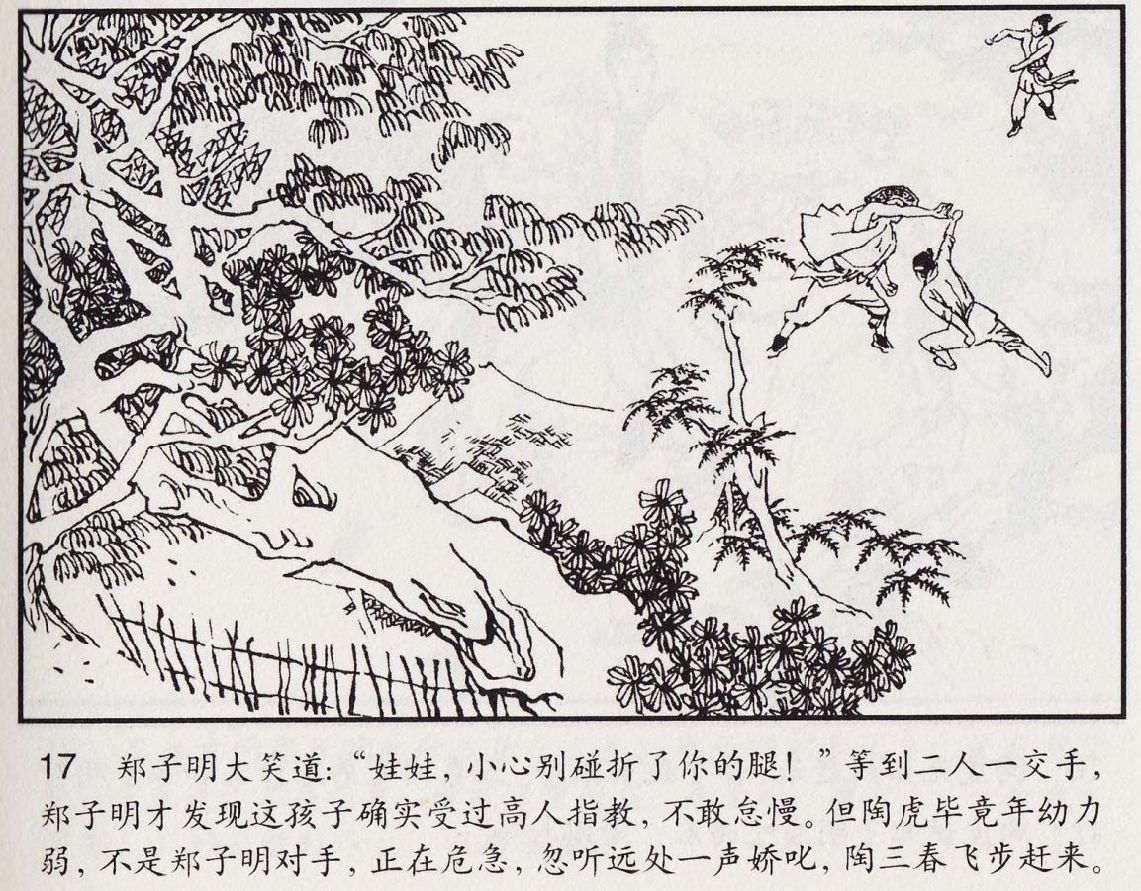 17 郑子明大笑道：“娃娃，小心别碰折了你的腿！”等到二人一交手，
郑子明才发现这孩子确实受过高人指教，不敢怠慢。但陶虎毕竟年幼力
弱，不是郑子明对手，正在危急，忽听远处一声娇叱，陶三春飞步赶来。